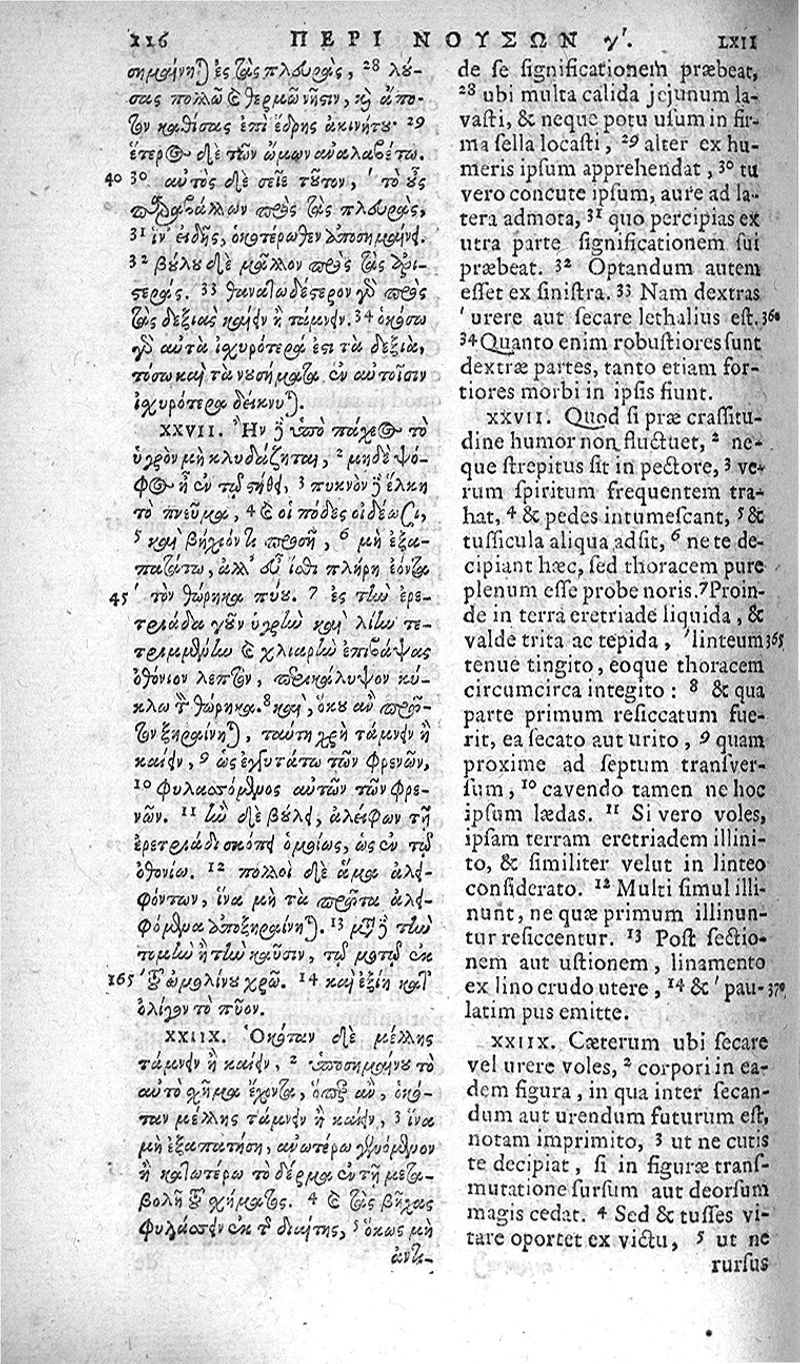 116 ΠΕΡΙ ΝΟΥΣΩΝ γ΄. LXII
σημήνῃ ἐς τὰς πλευράς, 28 λύ-
σας πολλῷ ϗ θερμῷ νῆςιν, ϗ ἀπο-
τον καθίσας ἐπὶ ἕδρης ἀκινήτου· 29
ἕτερος δὲ τῶν ὤμων ἀναλαβέτω.
40 30 αὐτὸς δὲ σεῖε τοῦτον, ' τὸ οὖς
παραβάλλων πρὸς τὰς πλευράς,
31 ἵν' εἰδῇς, ὁκοτέρωθεν ἀποσημαίνει.
32 βούλου δὲ μᾶλλον πρὸς τὰς ἀρι-
στεράς. 33 θανατωδέστερον γὸ πρὸς
τὰς δεξιὰς καίειν ἢ τάμνειν. 34 ὁκόσῳ
γὸ αὐτὰ ἰσχυρότερά ἐστι τὰ δεξιὰ,
τόσῳ καὶ τὰ νουσήματα ἐν αὐτοῖσιν
ἰσχυρότερα δείκνυται.
XXVII. Ἢν ϳ ὑπὸ πάχεος τὸ
ὑγρὸν μὴ κλυδάζηται, 2 μηδὲ ψό-
φος ᾖ ἐν τῷ στήθει, 3 πυκνὸν ἕλκῃ
τὸ πνεῦμα, 4 ϗ οἱ πόδες οἰδέωσι,
5 καὶ βήχιόν τι προσῇ, 6 μὴ ἐξα-
πατάτω, ἀλλ' εὖ ἴσθι πλήρη ἐόντα
45 ' τὸν θώρηκα πύου. 7 ἐς τὴν ἐρε-
τριάδα γοῦν ὑγρὴν καὶ λίην τε-
τριμμένην ϗ χλιαρὴν ἐπιβάψας
ὀθόνιον λεπτὸν, περικάλυψον κύ-
κλῳ τ θώρηκα. 8 καὶ, ὅκου ἂν πρῶ-
τον ξηραίνηται, ταύτῃ χρὴ τάμνειν ἢ
καίειν, 9 ὡς ἐγγυτάτω τῶν φρενῶν,
10 φυλασσόμενος αὐτῶν τῶν φρε-
νῶν. 11 ἢν δὲ βούλῃ, ἀλείφων τῇ
ἐρετριάδι σκόπει ὁμοίως, ὡς ἐν τῷ
ὀθονίῳ. 12 πολλοὶ δὲ ἅμα ἀλει-
φόντων, ἵνα μὴ τὰ πρῶτα ἀλει-
φόμενα ἀποξηραίνηται. 13 μετὰ τὴν
τομὴν ἢ τὴν καῦσιν, τῷ μοτῷ ἐκ
165 ' τοῦ ὠμολίνου χρῶ. 14 καὶ ἐξίη κατ'
ὀλίγον τὸ πῦον.
XXIIX. Ὁκόταν δὲ μέλλῃς
τάμνειν ἢ καίειν, 2 ὑποσημήνου τὸ
αὐτὸ σχῆμα ἔχοντα, ὅπερ ἂν, ὁκό-
ταν μέλλῃς τάμνειν ἢ καίειν, 3 ἵνα
μὴ ἐξαπατήσῃ, ἀνωτέρω γενόμενον
ἢ κατωτέρω τὸ δέρμα ἐν τῇ μετα-
βολῇ τοῦ σχήματος. 4 ϗ τὰς βῆχας
φυλάσσειν ἐκ τ διαίτης, 5 ὅκως μὴ
ἀντι-
de se significationem præbeat,
28 ubi multa calida jejunum la-
vasti, & neque potu usum in fir-
ma sella locasti, 29 alter ex hu-
meris ipsum apprehendat, 30 tu
vero concute ipsum, aure ad la-
tera admota, 31 quo percipias ex
utra parte significationem sui
præbeat. 32 Optandum autem
esset ex sinistra. 33 Nam dextras
' urere aut secare lethalius est. 360
34 Quanto enim robustiores sunt
dextræ partes, tanto etiam for-
tiores morbi in ipsis fiunt.
XXVII. Quod si præ crassitu-
dine humor non fluctuet, 2 ne-
que strepitus sit in pectore, 3 ve-
rum spiritum frequentem tra-
hat, 4 & pedes intumescant, 5 &
tussicula aliqua adsit, 6 ne te de-
cipiant hæc, sed thoracem pure
plenum esse probe noris. 7 Proin-
de in terra eretriade liquida, &
valde trita ac tepida, ' linteum 365
tenue tingito, eoque thoracem
circumcirca integito : 8 & qua
parte primum resiccatum fue-
rit, ea secato aut urito, 9 quam
proxime ad septum transver-
sum, 10 cavendo tamen ne hoc
ipsum lædas. 11 Si vero voles,
ipsam terram eretriadem illini-
to, & similiter velut in linteo
considerato. 12 Multi simul illi-
nunt, ne quæ primum illinun-
tur resiccentur. 13 Post sectio-
nem aut ustionem, linamento
ex lino crudo utere, 14 & ' pau- 370
latim pus emitte.
XXIIX. Cæterum ubi secare
vel urere voles, 2 corpori in ea-
dem figura, in qua inter secan-
dum aut urendum futurum est,
notam imprimito, 3 ut ne cutis
te decipiat, si in figuræ trans-
mutatione sursum aut deorsum
magis cedat. 4 Sed & tusses vi-
tare oportet ex victu, 5 ut ne
rursus